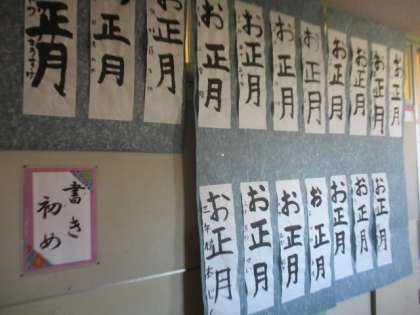 正月
お正月
お正月
お正月
お正月
お正月
お正月
お正月
お正月
お正月
お正月
書き
初め
お正月
お正月
お正月
お正月
お正月
お正月
お正月